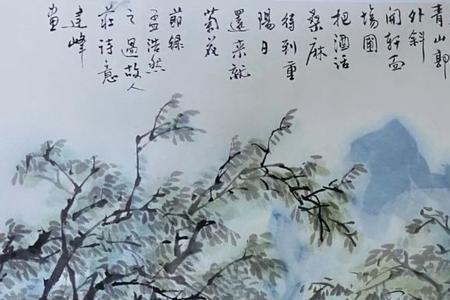 青山郭
外斜
開軒面
場圃
把酒話
桑麻
待到重
陽日
還来就
菊花
節錄
孟浩然
之過故人
莊詩意
建峰
畫